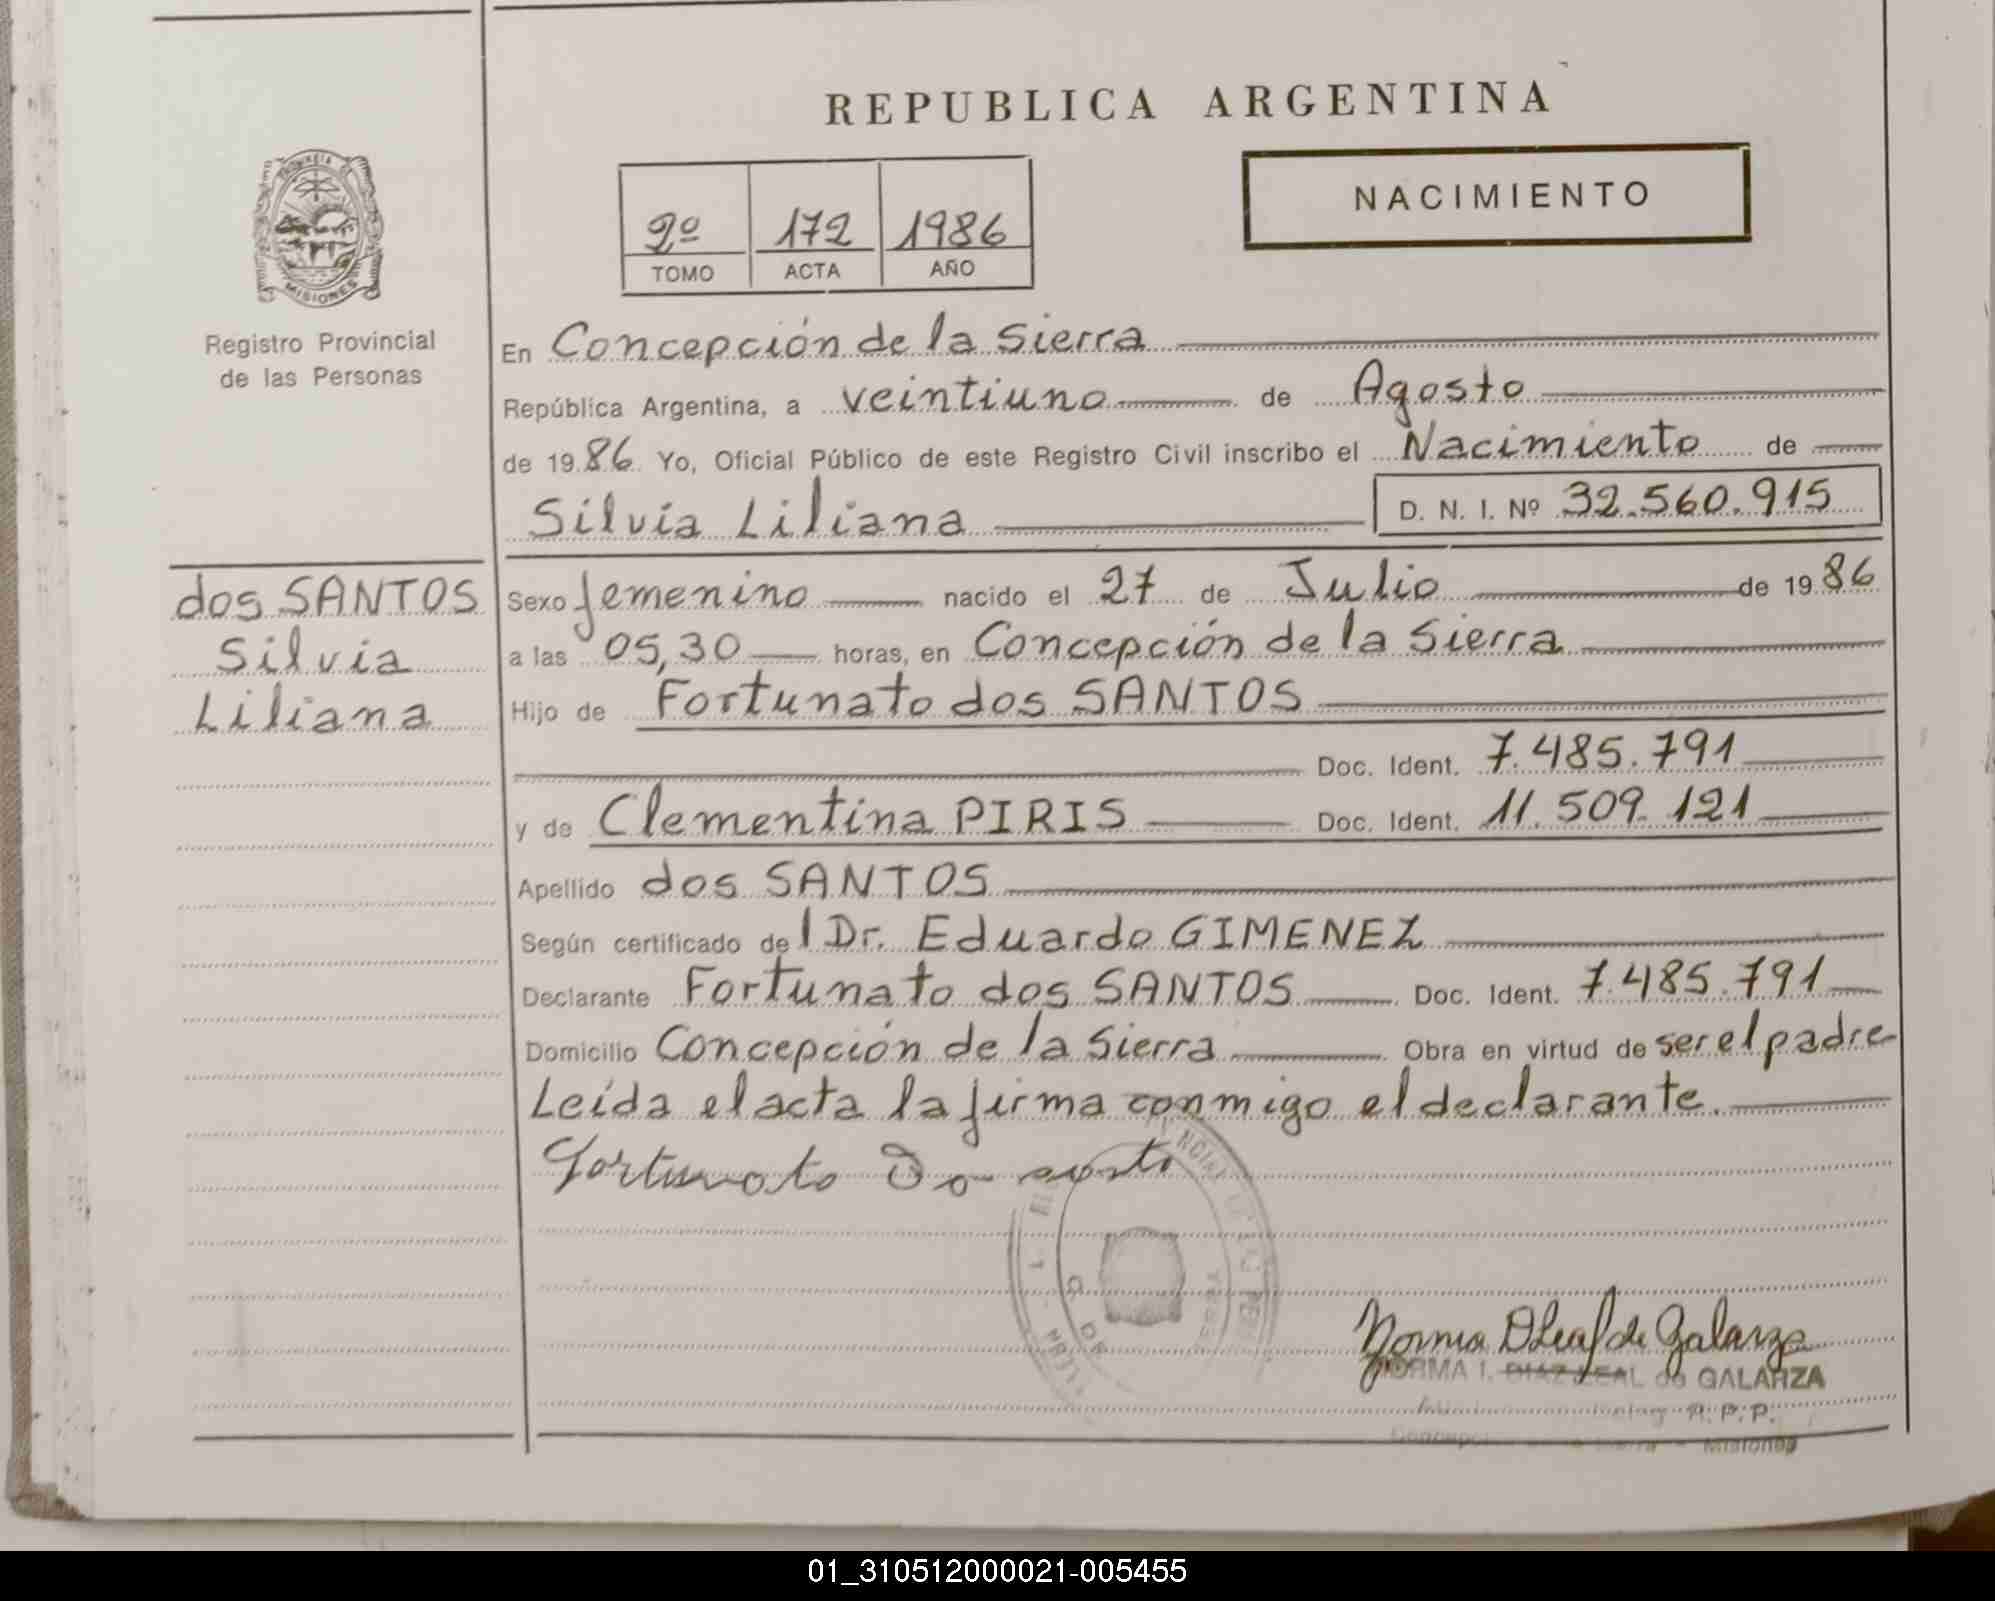 REPUBLICA ARGENTINA
PROVINCIA
MISIONES
Registro Provincial
de las Personas
2º 172 1986
TOMO ACTA AÑO
NACIMIENTO
En Concepción de la Sierra
República Argentina, a veintiuno de Agosto
de 1986 Yo, Oficial Público de este Registro Civil inscribo el Nacimiento de
Silvia Liliana D. N. I. Nº 32.560.915
dos SANTOS
Silvia
Liliana
Sexo femenino nacido el 27 de Julio de 1986
a las 05,30 horas, en Concepción de la Sierra
Hijo de Fortunato dos SANTOS
Doc. Ident. 7.485.791
y de Clementina PIRIS Doc. Ident. 11.509.121
Apellido dos SANTOS
Según certificado del Dr. Eduardo GIMENEZ
Declarante Fortunato dos SANTOS Doc. Ident. 7.485.791
Domicilio Concepción de la Sierra Obra en virtud de ser el padre
Leída el acta la firma conmigo el declarante.
Fortunato Do santo
Norma DLeal de Galarza
NORMA I. DIAZ LEAL de GALARZA
R. P. P.
Misiones
01_310512000021-005455